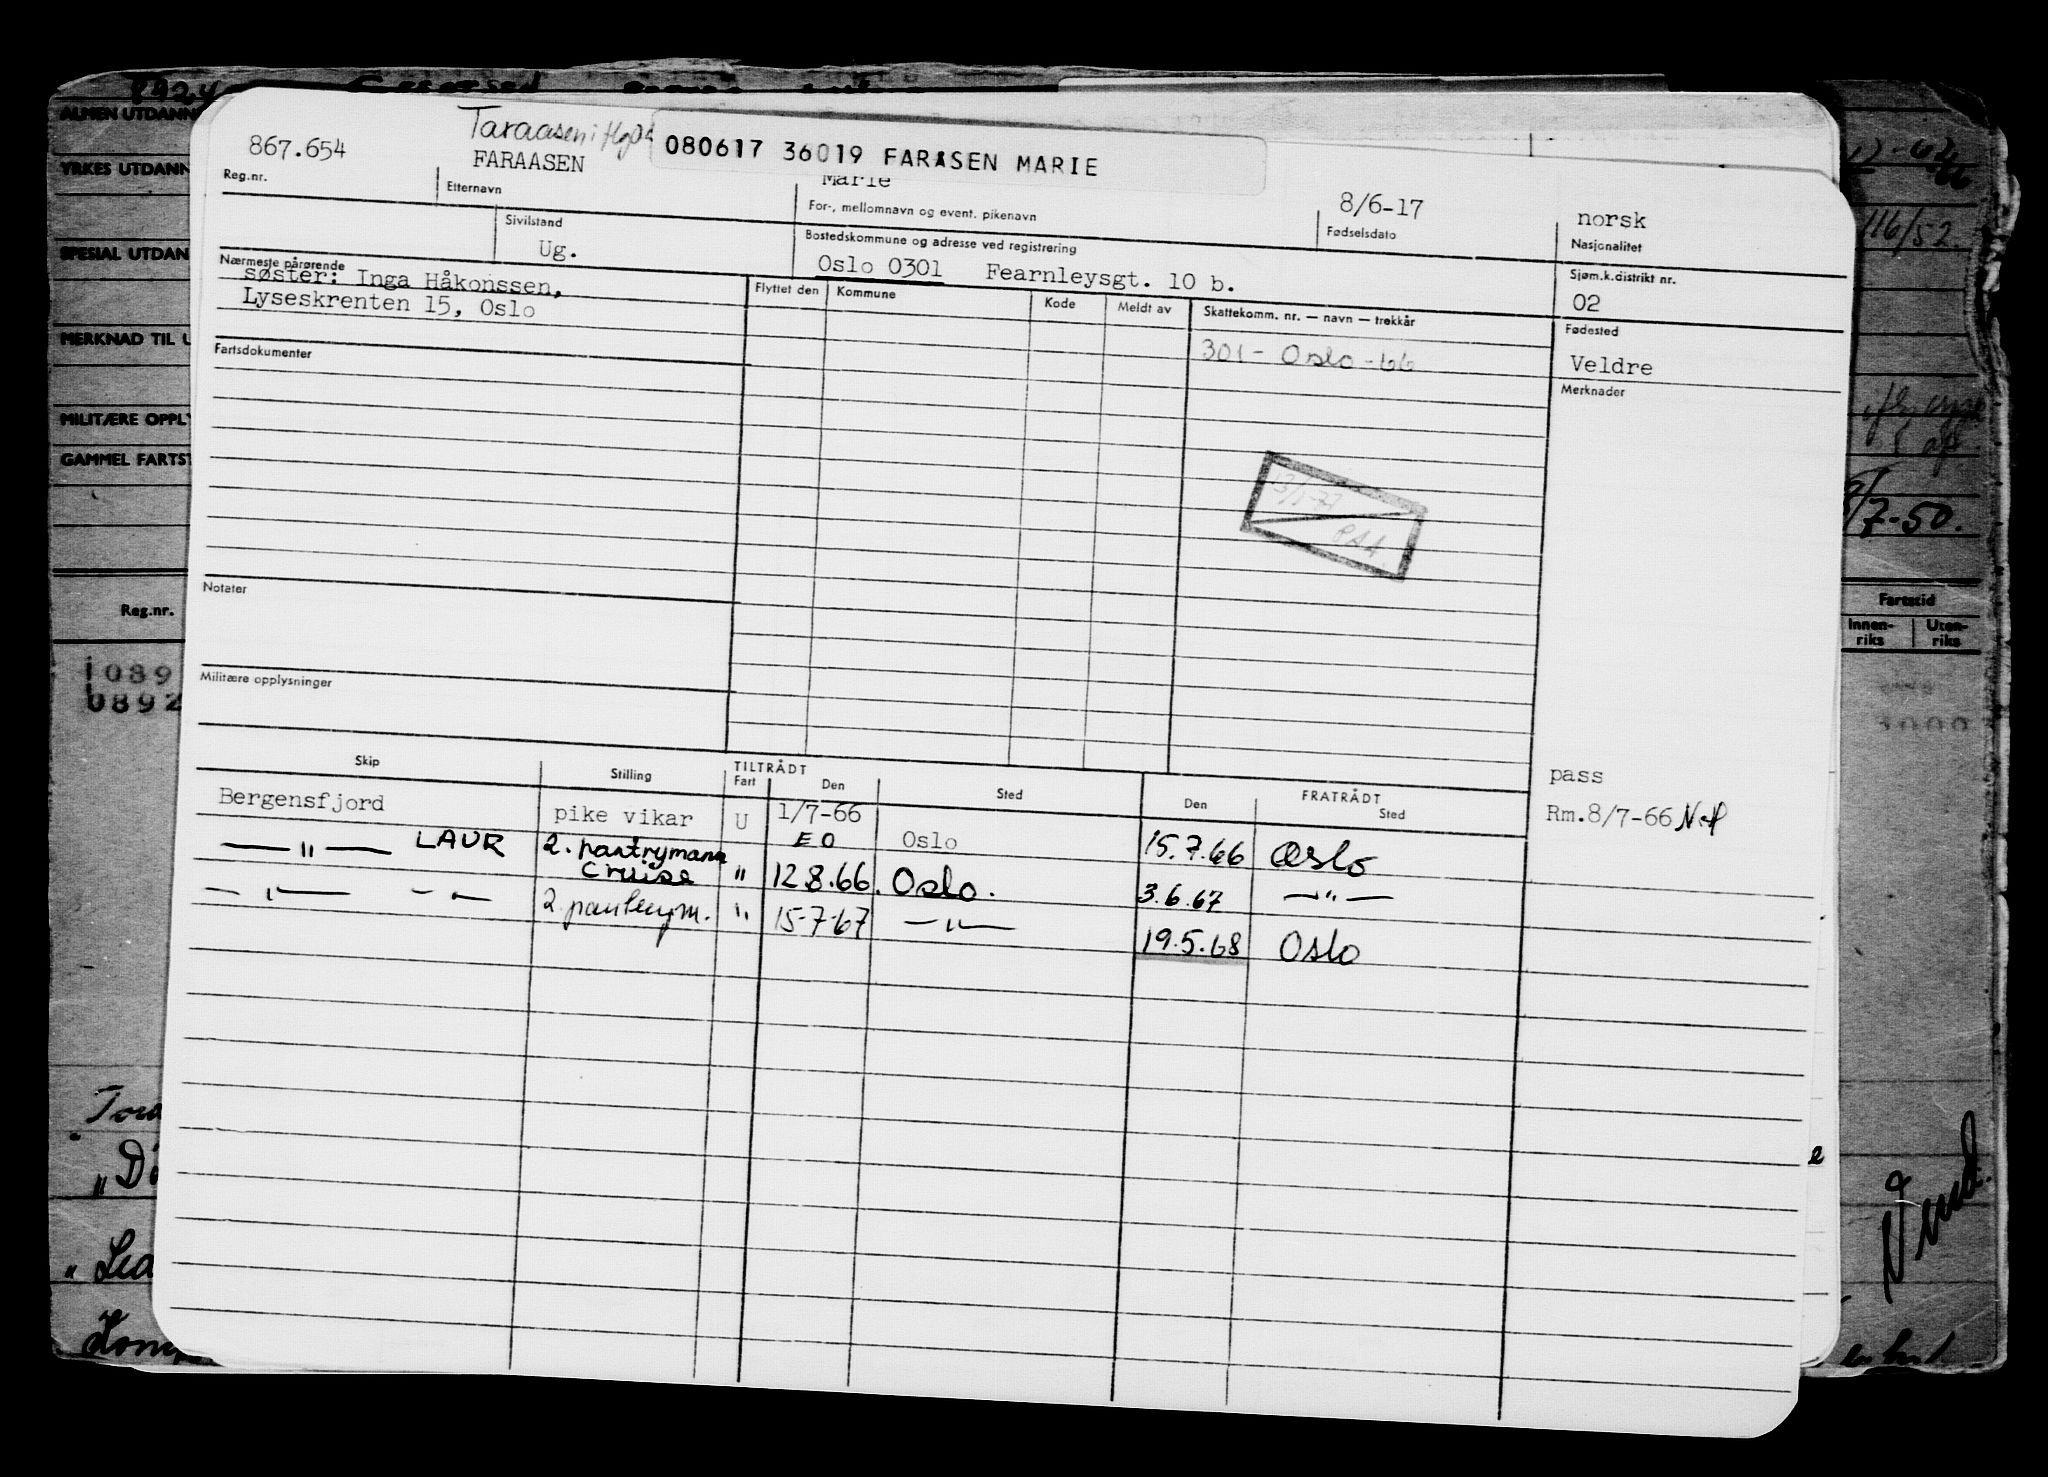 ALMEN UTDANN
YRKES UTDANN
SPESIAL UTDAN
MERKNAD TIL U
MILITÆRE OPPLY
GAMMEL FARTST
Reg.nr.
1089
0892
867.654
Reg.nr.
Taraasen i flg
FARAASEN
Etternavn
080617 36019 FARASEN MARIE
Marie
For-, mellomnavn og event. pikenavn
8/6-17
Fødselsdato
norsk
Nasjonalitet
Sivilstand
Ug.
Bostedskommune og adresse ved registrering
Oslo 0301 Fearnleysgt. 10 b.
Sjøm.k.distrikt nr.
02
Nærmeste pårørende
søster: Inga Håkonssen,
Lyseskrenten 15, Oslo
Flyttet den Kommune Kode Meldt av
Skattekomm. nr. — navn — trekkår
301 - Oslo - 66
Fødested
Veldre
Merknader
Fartsdokumenter
13/1-77
PAA
Notater
Militære opplysninger
Skip Stilling TILTRÅDT Fart Den Sted FRATRÅDT Den Sted
pass
Bergensfjord pike vikar U 1/7-66 Oslo 15.7.66 Oslo Rm.8/7-66
EO
— " — LAUR 2. pantrymann " 12.8.66. Oslo. 3.6.67 — " —
Cruise
— " — — " — 2. pantrym. " 15-7-67 — " — 19.5.68 Oslo
116/52.
/7-50.
Fartstid
Innen-
riks
Uten-
riks